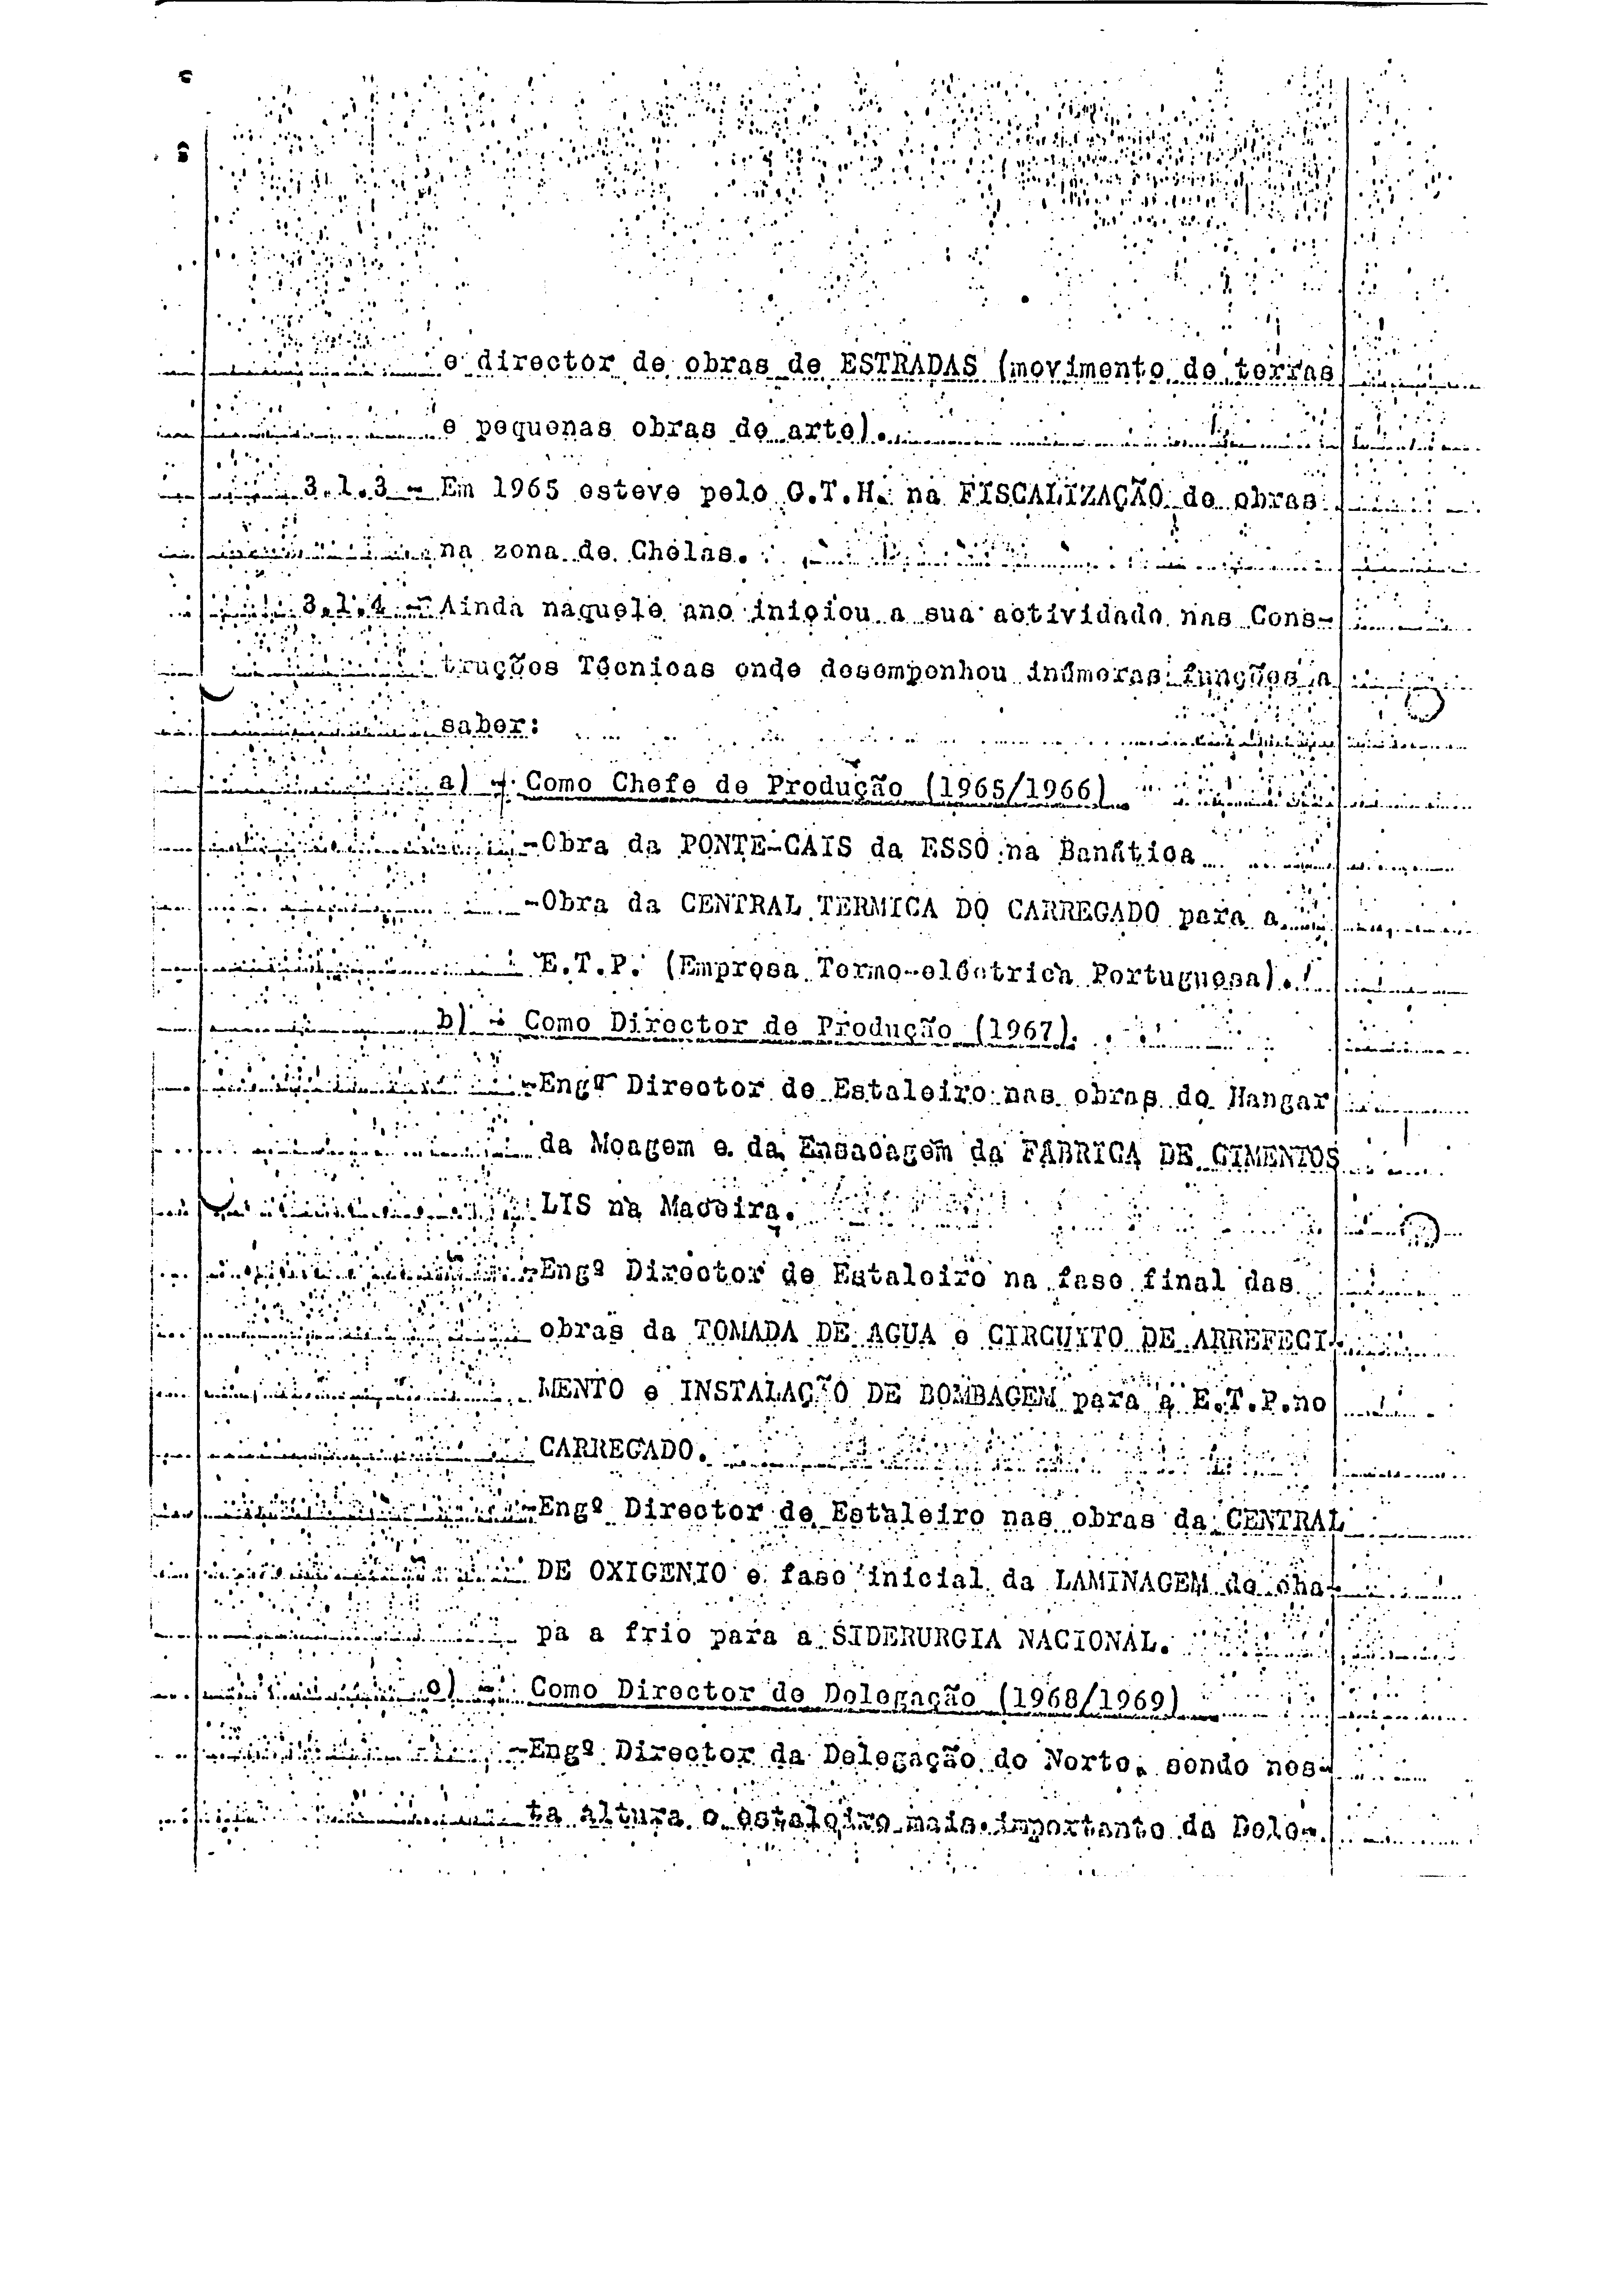 e director de obras de ESTRADAS (movimento de terras
e pequenas obras de arte).
3.1.3 - Em 1965 esteve pelo G.T.H. na FISCALIZAÇÃO de obras
na zona de Chelas.
3.1.4 - Ainda naquele ano iniciou a sua actividade nas Cons-
truções Técnicas onde desempenhou inúmeras funções a
saber:
a) - Como Chefe de Produção (1965/1966)
-Obra da PONTE-CAIS da ESSO na Banática
-Obra da CENTRAL TERMICA DO CARREGADO para a
E.T.P. (Empresa Termo-eléctrica Portuguesa).
b) - Como Director de Produção (1967).
-Engº Director de Estaleiro nas obras do Hangar
da Moagem e da Ensacagem da FABRICA DE CIMENTOS
LIS na Maceira.
-Engº Director de Estaleiro na fase final das
obras da TOMADA DE AGUA e CIRCUITO DE ARREFECI-
MENTO e INSTALAÇÃO DE BOMBAGEM para a E.T.P. no
CARREGADO.
-Engº Director de Estaleiro nas obras da CENTRAL
DE OXIGENIO e fase inicial da LAMINAGEM de cha-
pa a frio para a SIDERURGIA NACIONAL.
c) - Como Director de Delegação (1968/1969)
-Engº Director da Delegação do Norte, sendo nes-
ta altura o estaleiro mais importante da Dele-